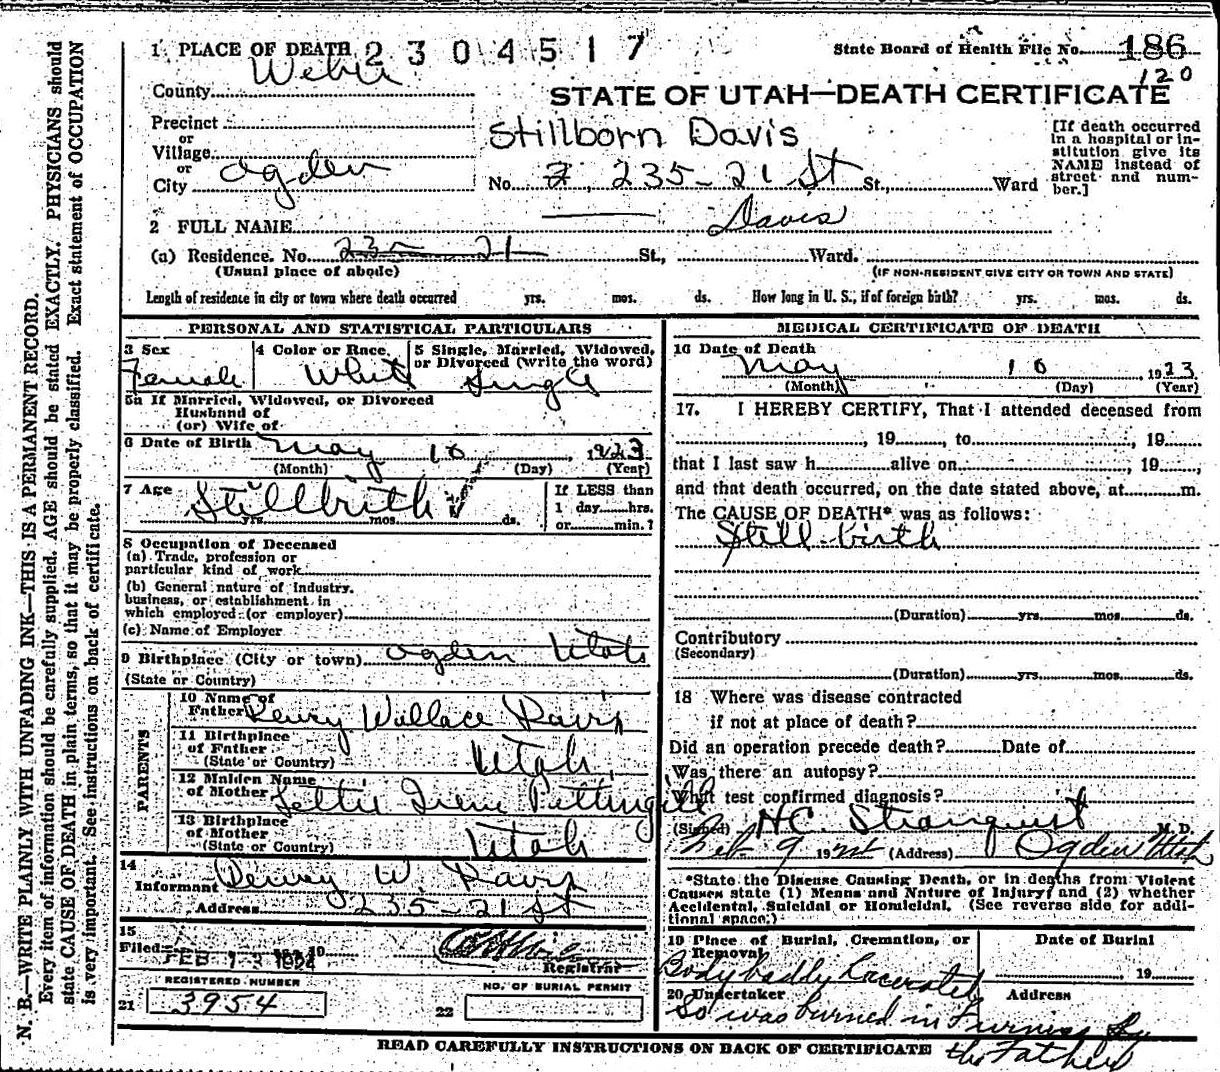 N. B.—WRITE PLAINLY WITH UNFADING INK—THIS IS A PERMANENT RECORD.
Every item of information should be carefully supplied. AGE should be stated EXACTLY. PHYSICIANS should
state CAUSE OF DEATH in plain terms, so that it may be properly classified. Exact statement of OCCUPATION
is very important. See instructions on back of certificate.
1 PLACE OF DEATH 2304517
State Board of Health File No. 186
120
County Weber
STATE OF UTAH—DEATH CERTIFICATE
Precinct
or
Village
or
City Ogden
Stillborn Davis
No. 235-21 St St., Ward
[If death occurred
in a hospital or in-
stitution give its
NAME instead of
street and num-
ber.]
2 FULL NAME Davis
(a) Residence. No. 235 21 St., Ward.
(Usual place of abode)
(IF NON-RESIDENT GIVE CITY OR TOWN AND STATE)
Length of residence in city or town where death occurred yrs. mos. ds. How long in U. S., if of foreign birth? yrs. mos. ds.
PERSONAL AND STATISTICAL PARTICULARS
3 Sex
Female
4 Color or Race
White
5 Single, Married, Widowed,
or Divorced (write the word)
Single
5a If Married, Widowed, or Divorced
Husband of
(or) Wife of
6 Date of Birth May 10, 1923
(Month) (Day) (Year)
7 Age Stillbirth
yrs. mos. ds.
If LESS than
1 day hrs.
or min.?
8 Occupation of Deceased
(a) Trade, profession or
particular kind of work
(b) General nature of industry,
business, or establishment in
which employed (or employer)
(c) Name of Employer
9 Birthplace (City or town) Ogden Utah
(State or Country)
PARENTS
10 Name of
Father Dewey Wallace Davis
11 Birthplace
of Father
(State or Country) Utah
12 Maiden Name
of Mother Lettie Irene Pettingill
13 Birthplace
of Mother
(State or Country) Utah
14
Informant Dewey W. Davis
Address 235-21 St
15
Filed FEB 13 1924
Registrar
REGISTERED NUMBER
21 3954
NO. OF BURIAL PERMIT
22
MEDICAL CERTIFICATE OF DEATH
16 Date of Death
May 10 1923
(Month) (Day) (Year)
17. I HEREBY CERTIFY, That I attended deceased from
, 19 , to , 19
that I last saw h alive on , 19 ,
and that death occurred, on the date stated above, at m.
The CAUSE OF DEATH* was as follows:
Still-birth
(Duration) yrs. mos. ds.
Contributory
(Secondary)
(Duration) yrs. mos. ds.
18 Where was disease contracted
if not at place of death?
Did an operation precede death? Date of
Was there an autopsy?
What test confirmed diagnosis?
(Signed) H.C. Stranquist M. D.
Feb 9 192 (Address) Ogden Utah
*State the Disease Causing Death, or in deaths from Violent
Causes state (1) Means and Nature of Injury; and (2) whether
Accidental, Suicidal or Homicidal. (See reverse side for addi-
tional space.)
19 Place of Burial, Cremation, or
Removal
Date of Burial
, 19
Body badly Lacerated
20 Undertaker Address
So was burned in Furness by
the Father
READ CAREFULLY INSTRUCTIONS ON BACK OF CERTIFICATE